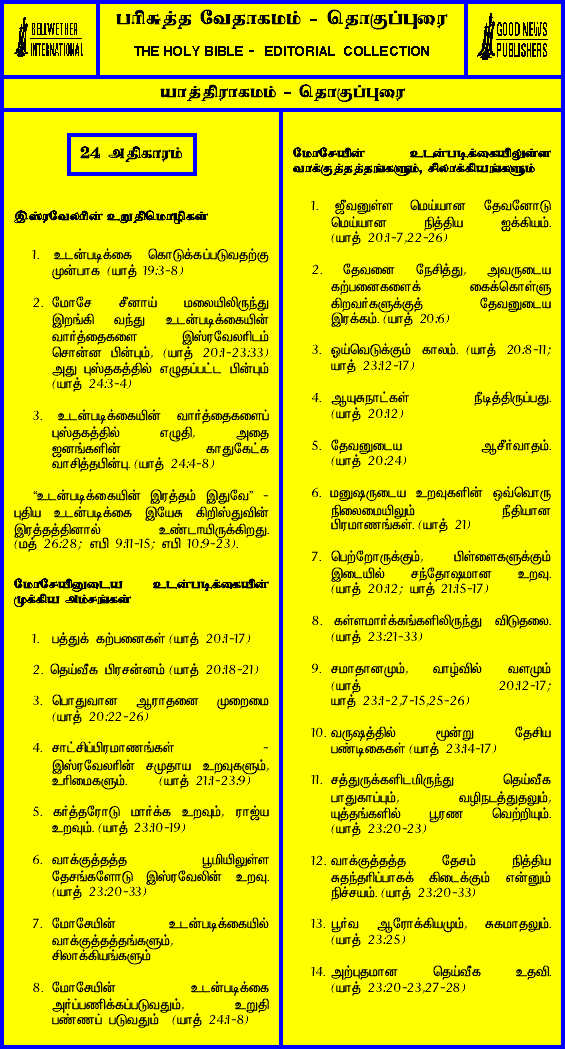 BELLWETHER
INTERNATIONAL
பரிசுத்த வேதாகமம் - தொகுப்புரை
THE HOLY BIBLE - EDITORIAL COLLECTION
GOOD NEWS
PUBLISHERS
யாத்திராகமம் - தொகுப்புரை
24 அதிகாரம்
இஸ்ரவேலரின் உறுதிமொழிகள்
1. உடன்படிக்கை கொடுக்கப்படுவதற்கு
முன்பாக (யாத் 19:3-8)
2. மோசே சீனாய் மலையிலிருந்து
இறங்கி வந்து உடன்படிக்கையின்
வார்த்தைகளை இஸ்ரவேலரிடம்
சொன்ன பின்பும், (யாத் 20:1-23:33)
அது புஸ்தகத்தில் எழுதப்பட்ட பின்பும்
(யாத் 24:3-4)
3. உடன்படிக்கையின் வார்த்தைகளைப்
புஸ்தகத்தில் எழுதி, அதை
ஜனங்களின் காதுகேட்க
வாசித்தபின்பு. (யாத் 24:4-8)
“உடன்படிக்கையின் இரத்தம் இதுவே” -
புதிய உடன்படிக்கை இயேசு கிறிஸ்துவின்
இரத்தத்தினால் உண்டாயிருக்கிறது.
(மத் 26:28; எபி 9:11-15; எபி 10:9-23).
மோசேயினுடைய உடன்படிக்கையின்
முக்கிய அம்சங்கள்
1. பத்துக் கற்பனைகள் (யாத் 20:1-17)
2. தெய்வீக பிரசன்னம் (யாத் 20:18-21)
3. பொதுவான ஆராதனை முறைமை
(யாத் 20:22-26)
4. சாட்சிப்பிரமாணங்கள் -
இஸ்ரவேலரின் சமுதாய உறவுகளும்,
உரிமைகளும். (யாத் 21:1-23:9)
5. கர்த்தரோடு மார்க்க உறவும், ராஜ்ய
உறவும். (யாத் 23:10-19)
6. வாக்குத்தத்த பூமியிலுள்ள
தேசங்களோடு இஸ்ரவேலின் உறவு.
(யாத் 23:20-33)
7. மோசேயின் உடன்படிக்கையில்
வாக்குத்தத்தங்களும்,
சிலாக்கியங்களும்
8. மோசேயின் உடன்படிக்கை
அர்ப்பணிக்கப்படுவதும், உறுதி
பண்ணப் படுவதும் (யாத் 24:1-8)
மோசேயின் உடன்படிக்கையிலுள்ள
வாக்குத்தத்தங்களும், சிலாக்கியங்களும்
1. ஜீவனுள்ள மெய்யான தேவனோடு
மெய்யான நித்திய ஐக்கியம்.
(யாத் 20:1-7,22-26)
2. தேவனை நேசித்து, அவருடைய
கற்பனைகளைக் கைக்கொள்ளு
கிறவர்களுக்குத் தேவனுடைய
இரக்கம். (யாத் 20:6)
3. ஓய்வெடுக்கும் காலம். (யாத் 20:8-11;
யாத் 23:12-17)
4. ஆயுசுநாட்கள் நீடித்திருப்பது.
(யாத் 20:12)
5. தேவனுடைய ஆசீர்வாதம்.
(யாத் 20:24)
6. மனுஷருடைய உறவுகளின் ஒவ்வொரு
நிலைமையிலும் நீதியான
பிரமாணங்கள். (யாத் 21)
7. பெற்றோருக்கும், பிள்ளைகளுக்கும்
இடையில் சந்தோஷமான உறவு.
(யாத் 20:12; யாத் 21:15-17)
8. கள்ளமார்க்கங்களிலிருந்து விடுதலை.
(யாத் 23:21-33)
9. சமாதானமும், வாழ்வில் வளமும்
(யாத் 20:12-17;
யாத் 23:1-2,7-15,25-26)
10. வருஷத்தில் மூன்று தேசிய
பண்டிகைகள் (யாத் 23:14-17)
11. சத்துருக்களிடமிருந்து தெய்வீக
பாதுகாப்பும், வழிநடத்துதலும்,
யுத்தங்களில் பூரண வெற்றியும்.
(யாத் 23:20-23)
12. வாக்குத்தத்த தேசம் நித்திய
சுதந்தரிப்பாகக் கிடைக்கும் என்னும்
நிச்சயம். (யாத் 23:20-33)
13. பூர்வ ஆரோக்கியமும், சுகமாதலும்.
(யாத் 23:25)
14. அற்புதமான தெய்வீக உதவி.
(யாத் 23:20-23,27-28)